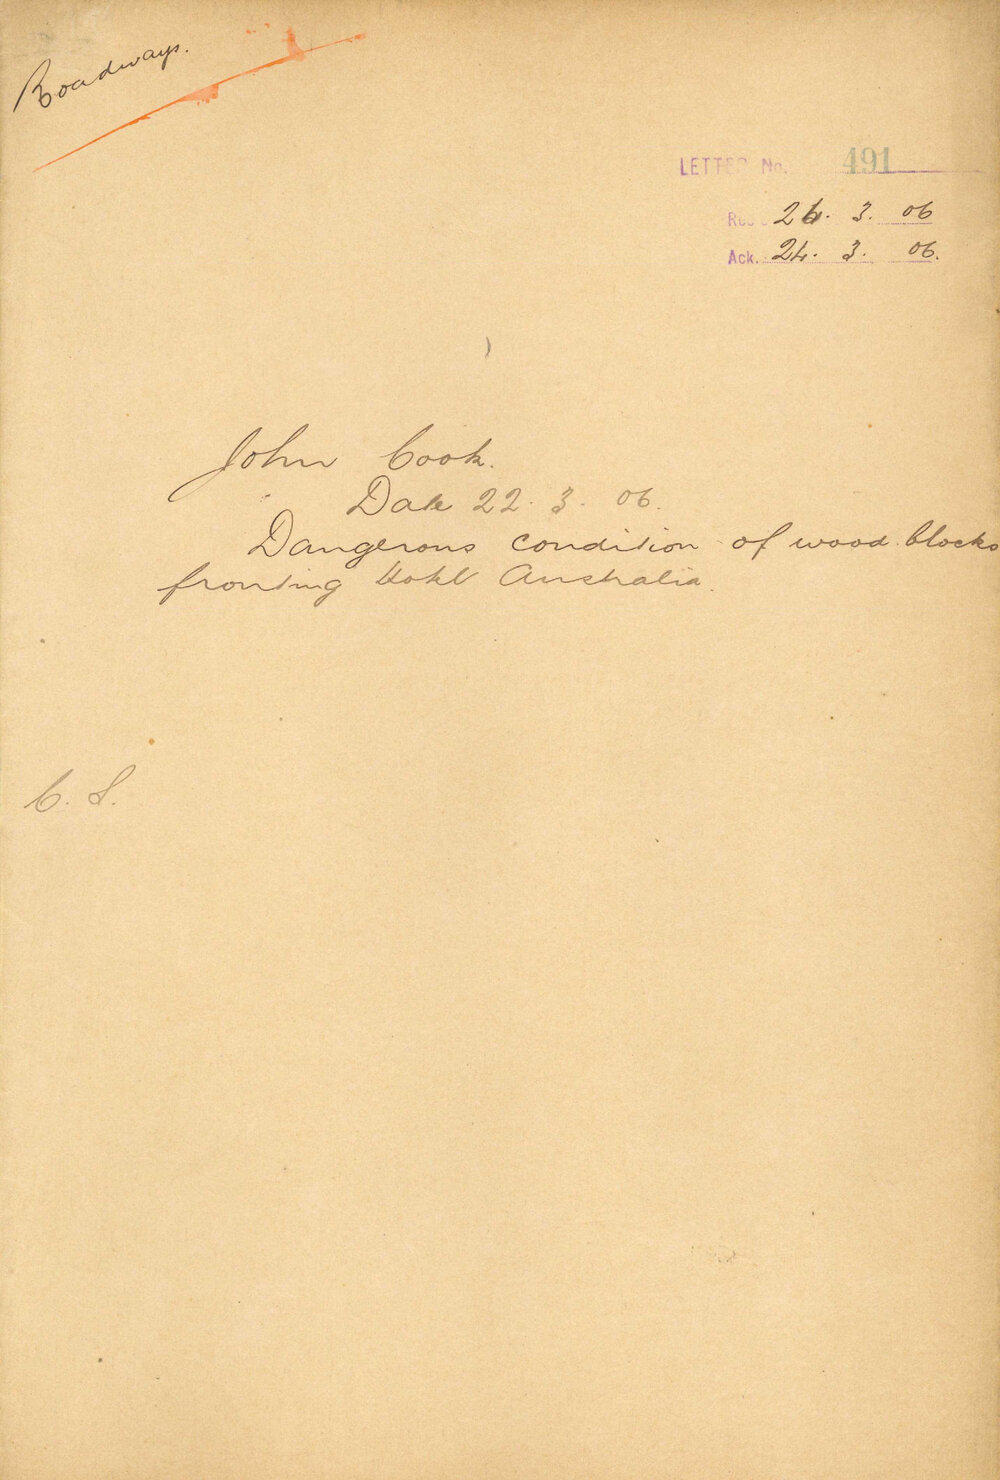 Roadways.
LETTER No. 491
Rec 24. 3. 06
Ack. 24. 3. 06.
John Cook.
Date 22. 3. 06.
Dangerous condition of wood blocks
fronting Hotel Australia.
C. S.